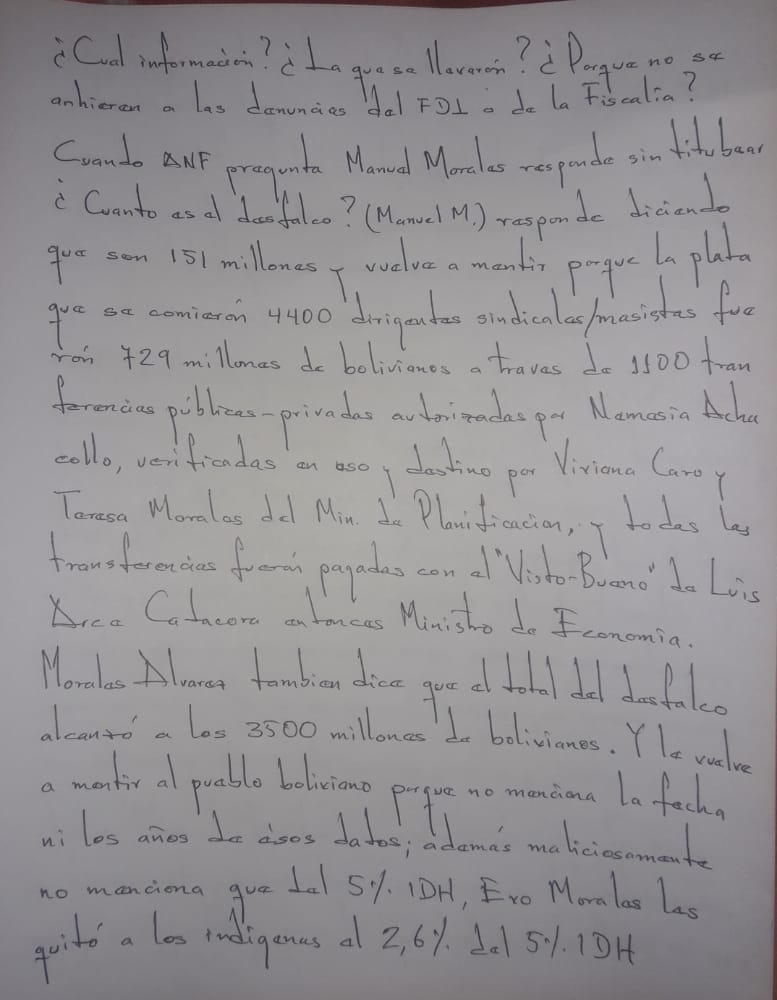 ¿Cual información? ¿La que se llevarón? ¿Porque no se
anhieren a las denuncias del FDI o de la Fiscalía?
Cuando ANF pregunta Manuel Morales responde sin titubear
¿Cuanto es el desfalco? (Manuel M.) responde diciendo
que son 151 millones y vuelve a mentir porque la plata
que se comierón 4400 dirigentes sindicales/masistas fue
rón 729 millones de bolivianos a traves de 1100 tran
ferencias públicas-privadas autorizadas por Nemesia Acha
collo, verificadas en uso y destino por Viviana Caro y
Teresa Morales del Min. de Planificacion, y todas las
transferencias fuerón pagadas con el "Visto-Bueno" de Luis
Arce Catacora entonces Ministro de Economía.
Morales Alvarez tambien dice que el total del desfalco
alcanzó a los 3500 millones de bolivianos. Y le vuelve
a mentir al pueblo boliviano porque no menciona la fecha
ni los años de ésos datos; además maliciosamente
no menciona que del 5% IDH, Evo Morales les
quitó a los indigenas el 2,6% del 5% IDH